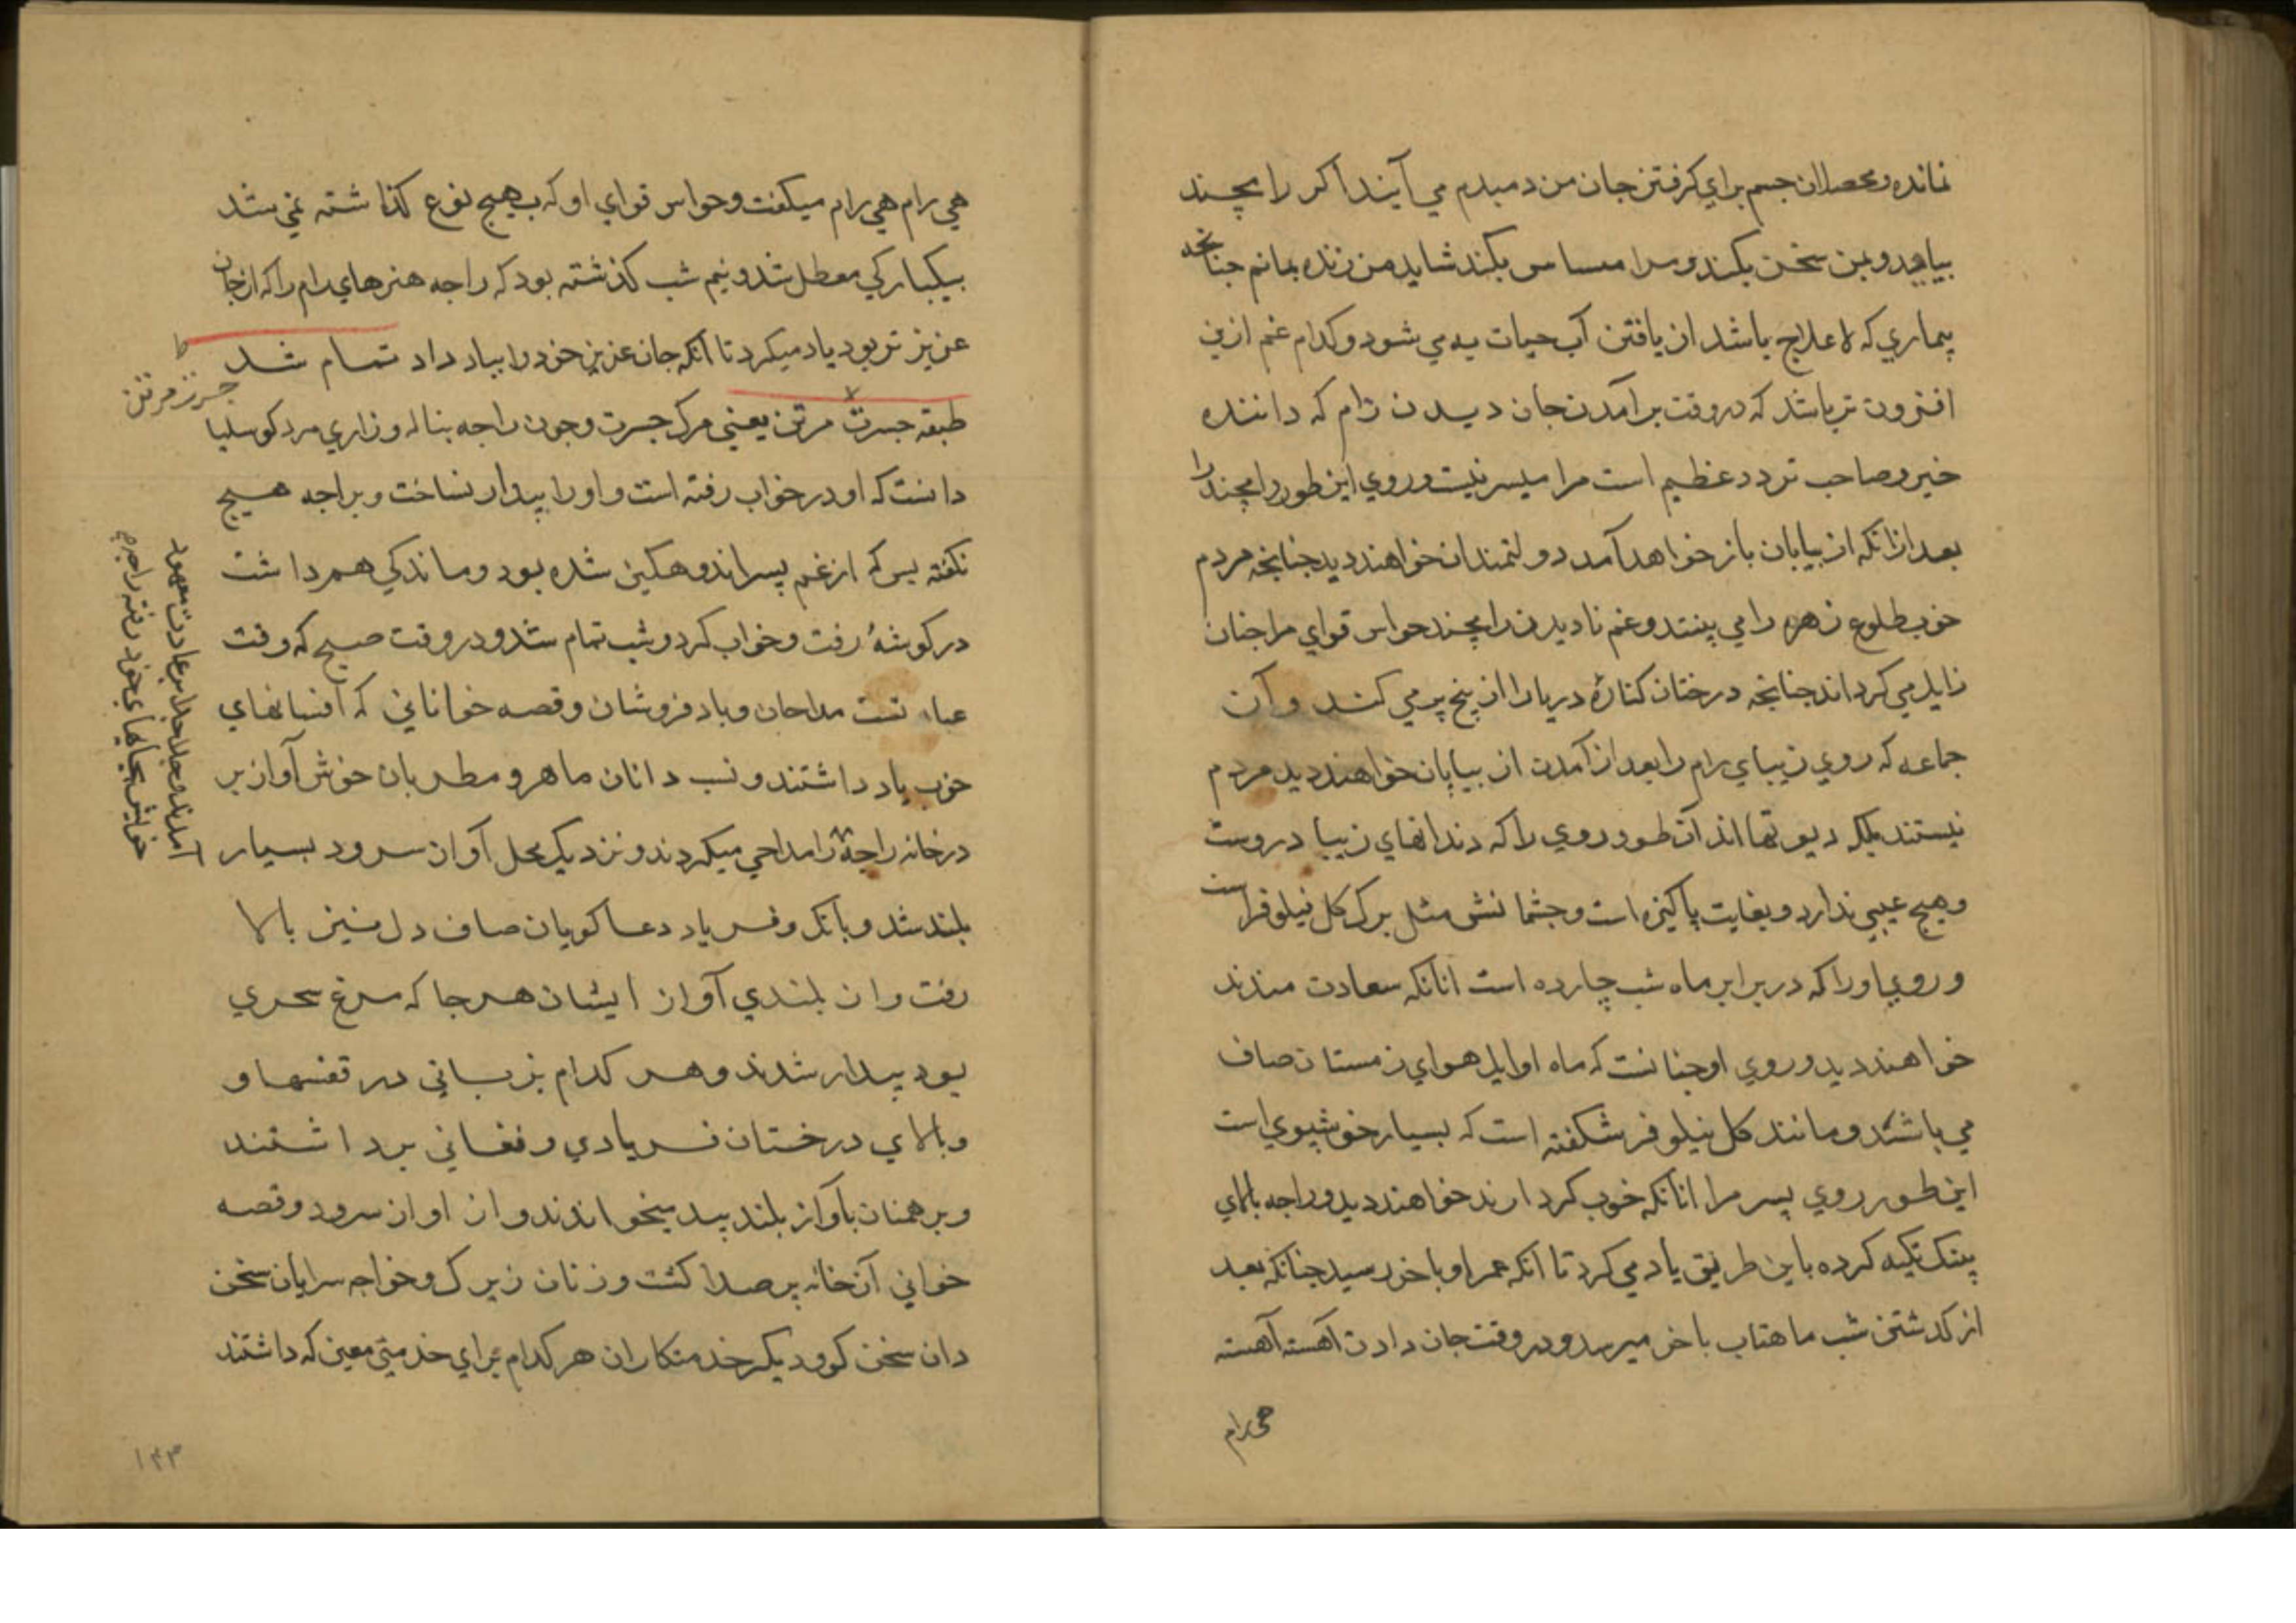 نمانده و محصلان جسم براي كرفتن جان من دمبدم مي آيند اكر رامچند
بيايد و بمن سخن بكند و مرا مساس بكند شايد من زنده بمانم جنانجه
بيماري كه لاعلاج باشد از يافتن آب حيات به مي شود و كدام غم ازين
افزون تر باشد كه در وقت برآمدن جان ديدن رام كه داننده
خير و صاحب تردد عظيم است مرا ميسر نيست و روي اين طور رامچند را
بعد ازانكه از بيابان باز خواهد آمد دولتمندان خواهند ديد جنانجه مردم
خوب طلوع زهره را مي بينند و غم ناديدن رامچند حواس قواي مرا جنان
زايل مي كرداند جنانجه درختان كنارهٔ دريا را از بيخ بر مي كند و آن
جماعه كه روي زيباي رام را بعد از آمدن از بيابان خواهند ديد مردم
نيستند بلكه ديوتها اند آن طور روي را كه دندانهاي زيبا دروست
و هيج عيبي ندارد و بغايت پاكيزه است و جشمانش مثل برك كل نيلوفر است
و روي او را كه در برابر ماه شب چارده است انانكه سعادت مندند
خواهند ديد و روي او جنانست كه ماه اوايل هواي زمستان صاف
مي باشد و مانند كل نيلوفر شكفته است كه بسيار خوشبوي است
اين طور روي پسر مرا انانكه خوب كردارند خواهند ديد و راجه بالاي
پلنك تكيه كرده باين طريق ياد مي كرد تا انكه عمر او باخر رسيد جنانكه بعد
از كذشتن شب ماهتاب باخر ميرسد و در وقت جان دادن آهسته آهسته
هي رام
هي رام هي رام ميكفت و حواس قواي او كه بهيج نوع كذاشته نمي شد
بيكباركي معطل شد و نيم شب كذشته بود كه راجه هنرهاي رام را كه از جان
عزيز تر بود ياد ميكرد تا آنكه جان عزيز خود را بباد داد تمام شد
طبقه جسرت مرتن يعني مرك جسرت و جون راجه بناله و زاري مرد كوسليا
جسرت مرتن
دانست كه او در خواب رفته است و او را بيدار نساخت و براجه هيج
نكفته پس كه از غم پسر اندوهكين شده بود و ماندكي هم داشت
در كوشهٔ رفت و خواب كرد و شب تمام شد و در وقت صبح كه وقت
عبادتست مداحان و بادفروشان و قصه خواناني كه افسانهاي
خوب ياد داشتند و نسب دانان ماهر و مطربان خوش آواز بر
در خانه راجه را مداحي ميكردند و نزديك محل آواز سرود بسيار
آمدند و جدا جدا بر عادت معهود
خويش بجاهاي خود رفته راجه را
بلند شد و بانك و فرياد دعاكويان صاف دل نيز بالا
رفت و از بلندي آواز ايشان هر جا كه مرغ سحري
بود بيدار شدند و هر كدام بزباني در قفسها و
و بالاي درختان فريادي و فغاني برداشتند
و برهمنان بآواز بلند بيد ميخواندند و از آواز سرود و قصه
خواني آن خانه پر صدا كشت و زنان زيرك و خواجه سرايان سخن
دان سخن كو و ديكر خدمتكاران هر كدام براي خدمتي معين كه داشتند
۱۴۳